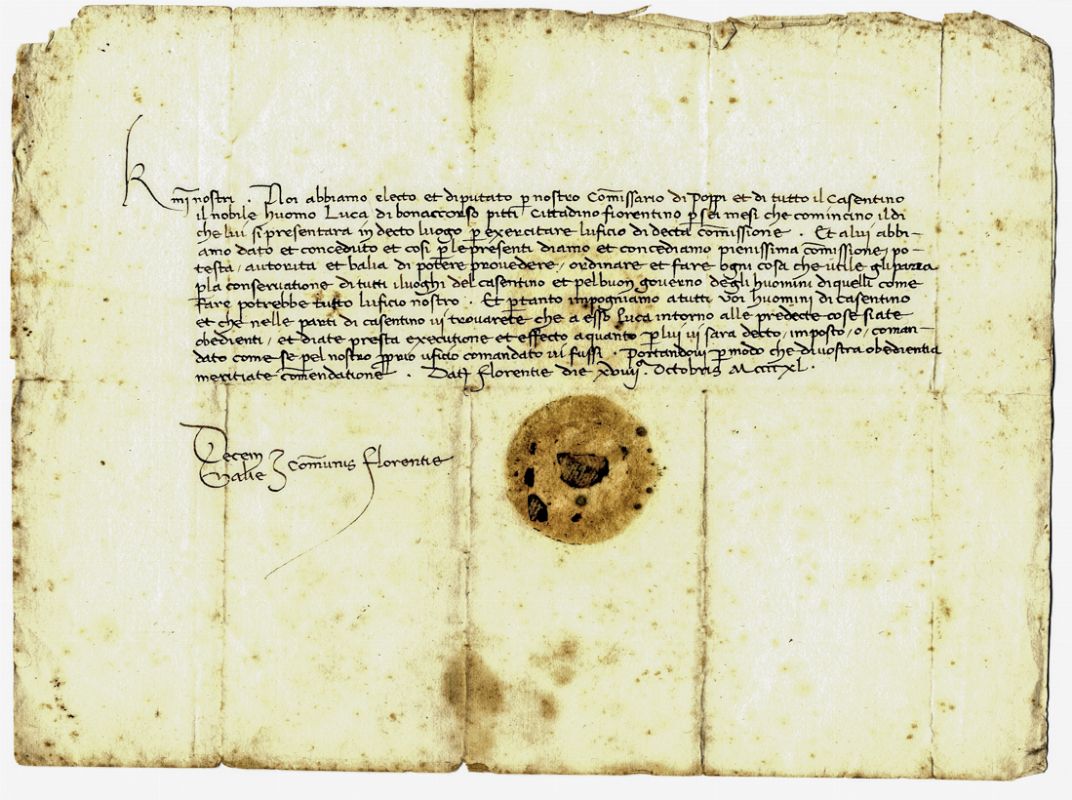 K̅mi nostri . Noi abbiamo electo et diputato p̲ nostro Com̅issario di Poppi et di tutto il Casentino
il nobile huomo Luca di bonaccorso pitti Cittadino fiorentino p̲ sei mesi che comincino il di
che lui si presentara in decto luogo p̲ exercitare luficio di decta com̅issione . Et a lui abbi-
amo dato et conceduto et cosi p̲ le presenti diamo et concediamo pienissima com̅issione, po-
testa, autorita et balia di potere provedere, ordinare et fare ogni cosa che utile gli parra
p̲ la conservatione di tutti i luoghi del casentino et pel buon governo degli huomini di quelli come
fare potrebbe tutto luficio nostro . Et p̲ tanto impogniamo a tutti voi huomini di casentino
et che nelle parti di casentino vi trovarete che a esso Luca intorno alle predecte cose siate
obedienti, et diate presta executione et effecto a quanto p̲ lui vi sara decto, imposto, o, coman-
dato come se pel nostro p̲prio uficio comandato vi fussi . Portandovi p̲ modo che di vostra obedientia
meritiate com̅endatione . Dat̅ florentie die xviiij . Octobris Mccccxl .
Decem
Balie Com̅unis florentie